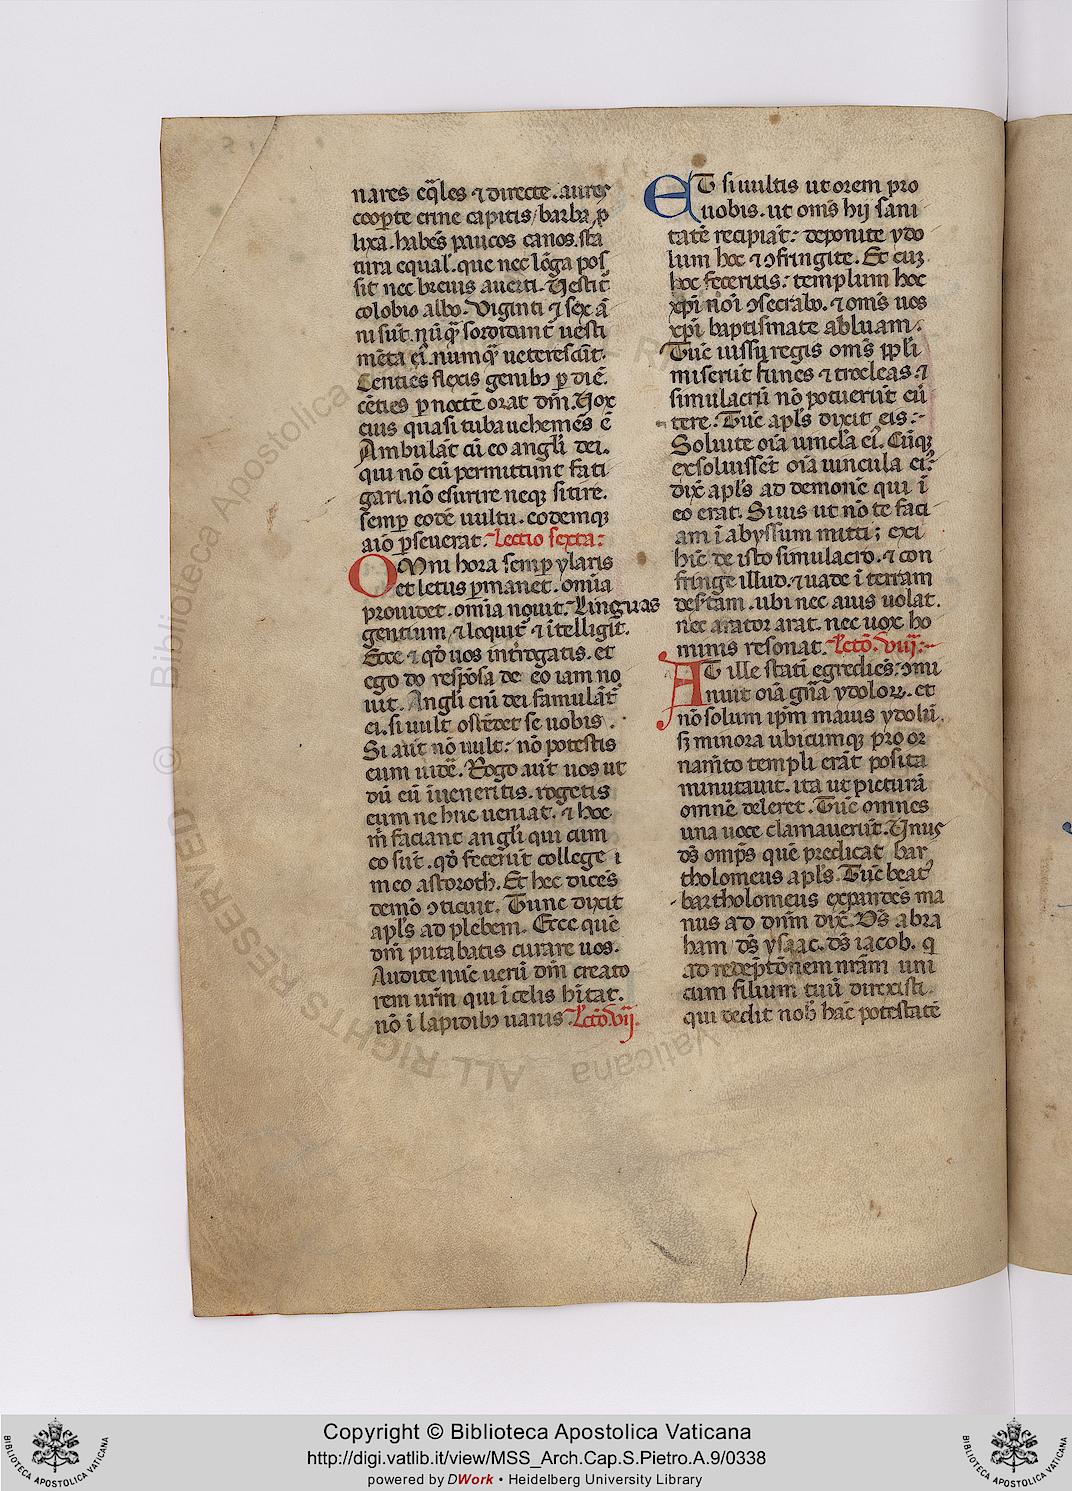 nares eq̃les ⁊ directe. aures
coop̱te crine capitis, barba ꝓ
lixa. habẽs paucos canos. sta
tura equal̃. que nec lõga pos
sit nec breuis auerti. Uestit᷑
colobio albo. Viginti ⁊ sex ã
ni sũt. nũq̃ sordidant᷑ uesti
mẽta ei᷒. numq̃ ueterescũt.
Centies flexis genibꝫ ꝑ diẽ.
cẽties ꝑ noctẽ orat dñm. Uox
eius quasi tuba uehemẽs ẽ
Ambulãt cũ eo angl̃i dei.
qui nõ eũ permittunt fati
gari. nõ esurire neqꝫ sitire.
semꝑ eodẽ uultu. eodemqꝫ
aĩo ꝑseuerat. Lectio sexta:
OMni hora semꝑ ylaris
et letus ꝑmanet. om̃ia
prouidet. om̃ia nouit. Linguas
gentium ⁊ loquit᷑ ⁊ ĩtelligit᷑.
Ecce ⁊ qð uos ĩt̃rogatis. et
ego do respõsa de eo iam no
uit. Angl̃i eni dei famulãt᷑
ei. si uult ostẽdet se uobis.
Si aut̃ nõ uult: nõ potestis
eum uidẽ. Rogo aut̃ uos ut
dũ eũ ĩueneritis. rogetis
eum ne huc ueniat. ⁊ hoc
m̃ faciant angl̃i qui cum
eo sũt. qð fecerũt college
meo astoroth. Et hec dicẽs
demõ ↄticuit. Tunc dixit
apl̃s ad plebem. Ecce quẽ
dm̃ putabatis curare uos.
Audite nũc uerũ dm̃ creato
rem ur̃m qui ĩ celis hĩtat.
nõ ĩ lapidibꝫ uanis. Lctõ. vij.
ET si uultis ut orem pro
uobis. ut om̃s hij sani
tatẽ recipiãt: deponite ydo
lum hoc ⁊ ↄfringite. Et cuꝫ
hoc feceritis: templum hoc
xp̃i nõi ↄsecrabo. ⁊ om̃s uos
xp̃i baptismate abluam.
Tũc iussu regis om̃s ppl̃i
miserũt funes ⁊ trocleas. ⁊
simulacrũ nõ potuerũt eũ
tere. Tũc apl̃s dixit eis:
Soluite oĩa uincl̃a ei᷒. Cũqꝫ
exsoluissẽt oĩa uincula ei᷒:
dix̃ apl̃s ad demonẽ qui ĩ
eo erat. Si uis ut nõ te faci
am ĩ abyssum mitti; exi
hĩc de isto simulacro. ⁊ con
fringe illud. ⁊ uade ĩ terram
des̃tam. ubi nec auis uolat.
nec arator arat. nec uox ho
minis resonat. Lctõ. viij.
AT ille statĩ egrediẽs: ↄmi
nuit oĩa gñ̃a ydoloꝝ. et
nõ solum ip̃m maius ydolũ.
sꝫ minora ubicumqꝫ pro or
nam̃to templi erãt posita
minutauit. ita ut picturã
omnẽ deleret. Tũc omnes
una uoce clamauerũt. Unus
ds̃ omp̃s quẽ predicat bar
tholomeus apl̃s. Tũc beat᷒
bartholomeus expandẽs ma
nus ad dñm dix̃. Ds̃ abra
ham ds̃ ysaac. ds̃ iacob. q
ad redẽptõnem nr̃am uni
cum filium tuũ direxisti.
qui dedit nob̃ hãc potestatẽ
© Biblioteca Apostolica Vaticana
ALL RIGHTS RESERVED
Copyright © Biblioteca Apostolica Vaticana
http://digi.vatlib.it/view/MSS_Arch.Cap.S.Pietro.A.9/0338
powered by DWork • Heidelberg University Library
BIBLIOTECA APOSTOLICA VATICANA
BIBLIOTECA APOSTOLICA VATICANA